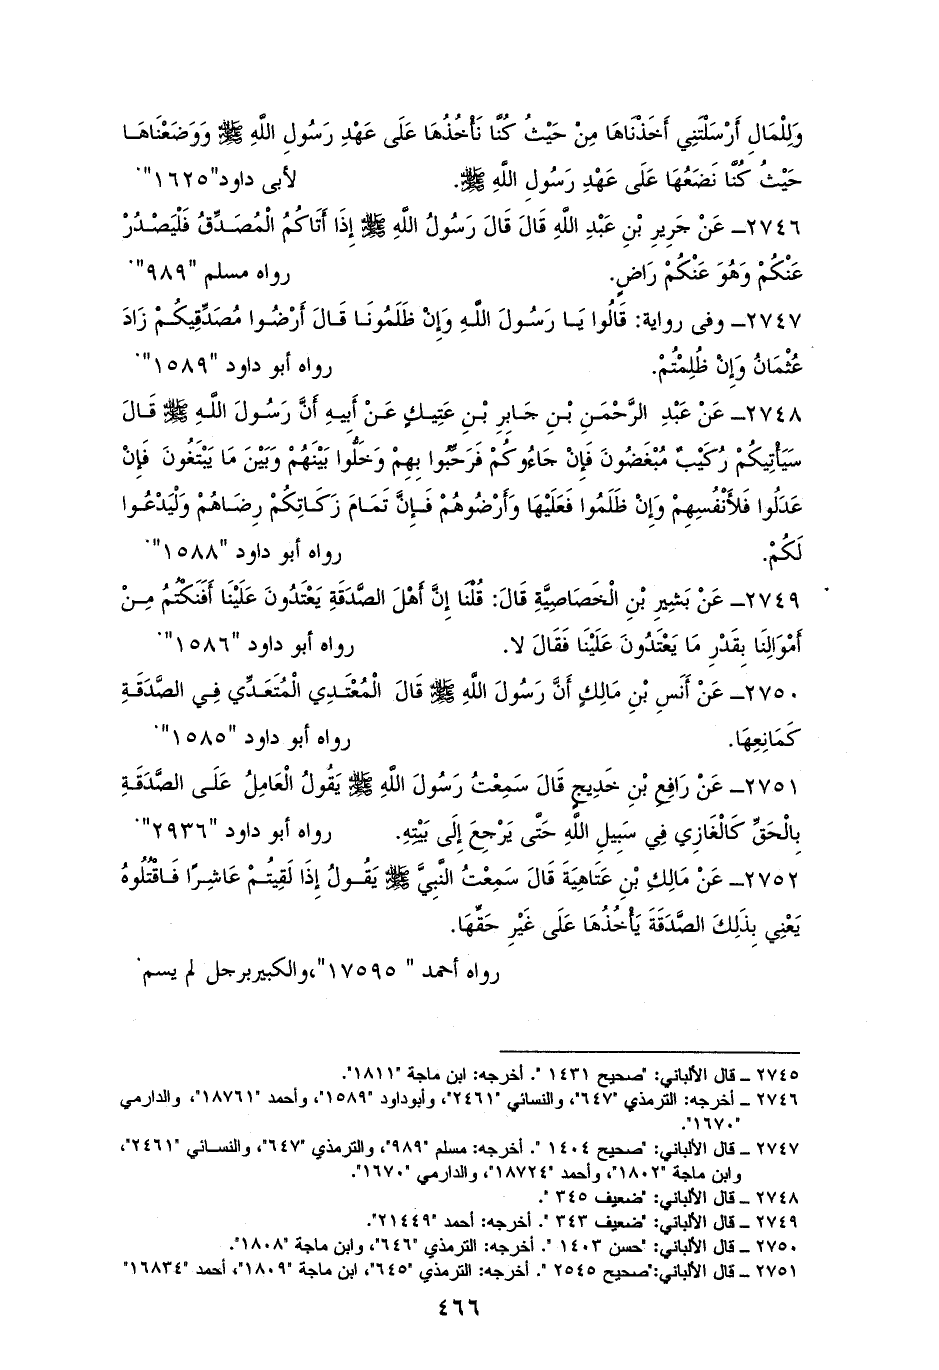 وَلِلْمَالِ أَرْسَلْتَنِي أَخَذْنَاهَا مِنْ حَيْثُ كُنَّا نَأْخُذُهَا عَلَى عَهْدِ رَسُولِ اللَّهِ ﷺ وَوَضَعْنَاهَا
حَيْثُ كُنَّا نَضَعُهَا عَلَى عَهْدِ رَسُولِ اللَّهِ ﷺ. لأبى داود"١٦٢٥".
٢٧٤٦ـ عَنْ جَرِيرِ بْنِ عَبْدِ اللَّهِ قَالَ قَالَ رَسُولُ اللَّهِ ﷺ إِذَا أَتَاكُمُ الْمُصَدِّقُ فَلْيَصْدُرْ
عَنْكُمْ وَهُوَ عَنْكُمْ رَاضٍ. رواه مسلم "٩٨٩".
٢٧٤٧ـ وفى رواية: قَالُوا يَا رَسُولَ اللَّهِ وَإِنْ ظَلَمُونَا قَالَ أَرْضُوا مُصَدِّقِيكُمْ زَادَ
عُثْمَانُ وَإِنْ ظُلِمْتُمْ. رواه أبو داود "١٥٨٩".
٢٧٤٨ـ عَنْ عَبْدِ الرَّحْمَنِ بْنِ جَابِرِ بْنِ عَتِيكٍ عَنْ أَبِيهِ أَنَّ رَسُولَ اللَّهِ ﷺ قَالَ
سَيَأْتِيكُمْ رُكَيْبٌ مُبْغَضُونَ فَإِنْ جَاءُوكُمْ فَرَحِّبُوا بِهِمْ وَخَلُّوا بَيْنَهُمْ وَبَيْنَ مَا يَبْتَغُونَ فَإِنْ
عَدَلُوا فَلأَنْفُسِهِمْ وَإِنْ ظَلَمُوا فَعَلَيْهَا وَأَرْضُوهُمْ فَإِنَّ تَمَامَ زَكَاتِكُمْ رِضَاهُمْ وَلْيَدْعُوا
لَكُمْ. رواه أبو داود "١٥٨٨".
٢٧٤٩ـ عَنْ بَشِيرِ بْنِ الْخَصَاصِيَّةِ قَالَ: قُلْنَا إِنَّ أَهْلَ الصَّدَقَةِ يَعْتَدُونَ عَلَيْنَا أَفَنَكْتُمُ مِنْ
أَمْوَالِنَا بِقَدْرِ مَا يَعْتَدُونَ عَلَيْنَا فَقَالَ لا. رواه أبو داود "١٥٨٦".
٢٧٥٠ـ عَنْ أَنَسِ بْنِ مَالِكٍ أَنَّ رَسُولَ اللَّهِ ﷺ قَالَ الْمُعْتَدِي الْمُتَعَدِّي فِي الصَّدَقَةِ
كَمَانِعِهَا. رواه أبو داود "١٥٨٥".
٢٧٥١ـ عَنْ رَافِعِ بْنِ خَدِيجٍ قَالَ سَمِعْتُ رَسُولَ اللَّهِ ﷺ يَقُولُ الْعَامِلُ عَلَى الصَّدَقَةِ
بِالْحَقِّ كَالْغَازِي فِي سَبِيلِ اللَّهِ حَتَّى يَرْجِعَ إِلَى بَيْتِهِ. رواه أبو داود "٢٩٣٦".
٢٧٥٢ـ عَنْ مَالِكِ بْنِ عَتَاهِيَةَ قَالَ سَمِعْتُ النَّبِيَّ ﷺ يَقُولُ إِذَا لَقِيتُمْ عَاشِرًا فَاقْتُلُوهُ
يَعْنِي بِذَلِكَ الصَّدَقَةَ يَأْخُذُهَا عَلَى غَيْرِ حَقِّهَا.
رواه أحمد " ١٧٥٩٥"،والكبيربرجل لم يسم.
٢٧٤٥ ـ قال الألباني: "صحيح ١٤٣١ ". أخرجه: ابن ماجة "١٨١١".
٢٧٤٦ ـ أخرجه: الترمذي "٦٤٧"، والنسائي "٢٤٦١"، وأبوداود "١٥٨٩"، وأحمد "١٨٧٦١"، والدارمي
"١٦٧٠".
٢٧٤٧ ـ قال الألباني: "صحيح ١٤٠٤ ". أخرجه: مسلم "٩٨٩"، والترمذي "٦٤٧"، والنسائي "٢٤٦١"،
وابن ماجة "١٨٠٢"، وأحمد "١٨٧٢٤"، والدارمي "١٦٧٠".
٢٧٤٨ ـ قال الألباني: "ضعيف ٣٤٥ ".
٢٧٤٩ ـ قال الألباني: "ضعيف ٣٤٣ ". أخرجه: أحمد "٢١٤٤٩".
٢٧٥٠ ـ قال الألباني: "حسن ١٤٠٣ ". أخرجه: الترمذي "٦٤٦"، وابن ماجة "١٨٠٨".
٢٧٥١ ـ قال الألباني:"صحيح ٢٥٤٥ ". أخرجه: الترمذي "٦٤٥"، ابن ماجة "١٨٠٩"، أحمد "١٦٨٣٤"
٤٦٦